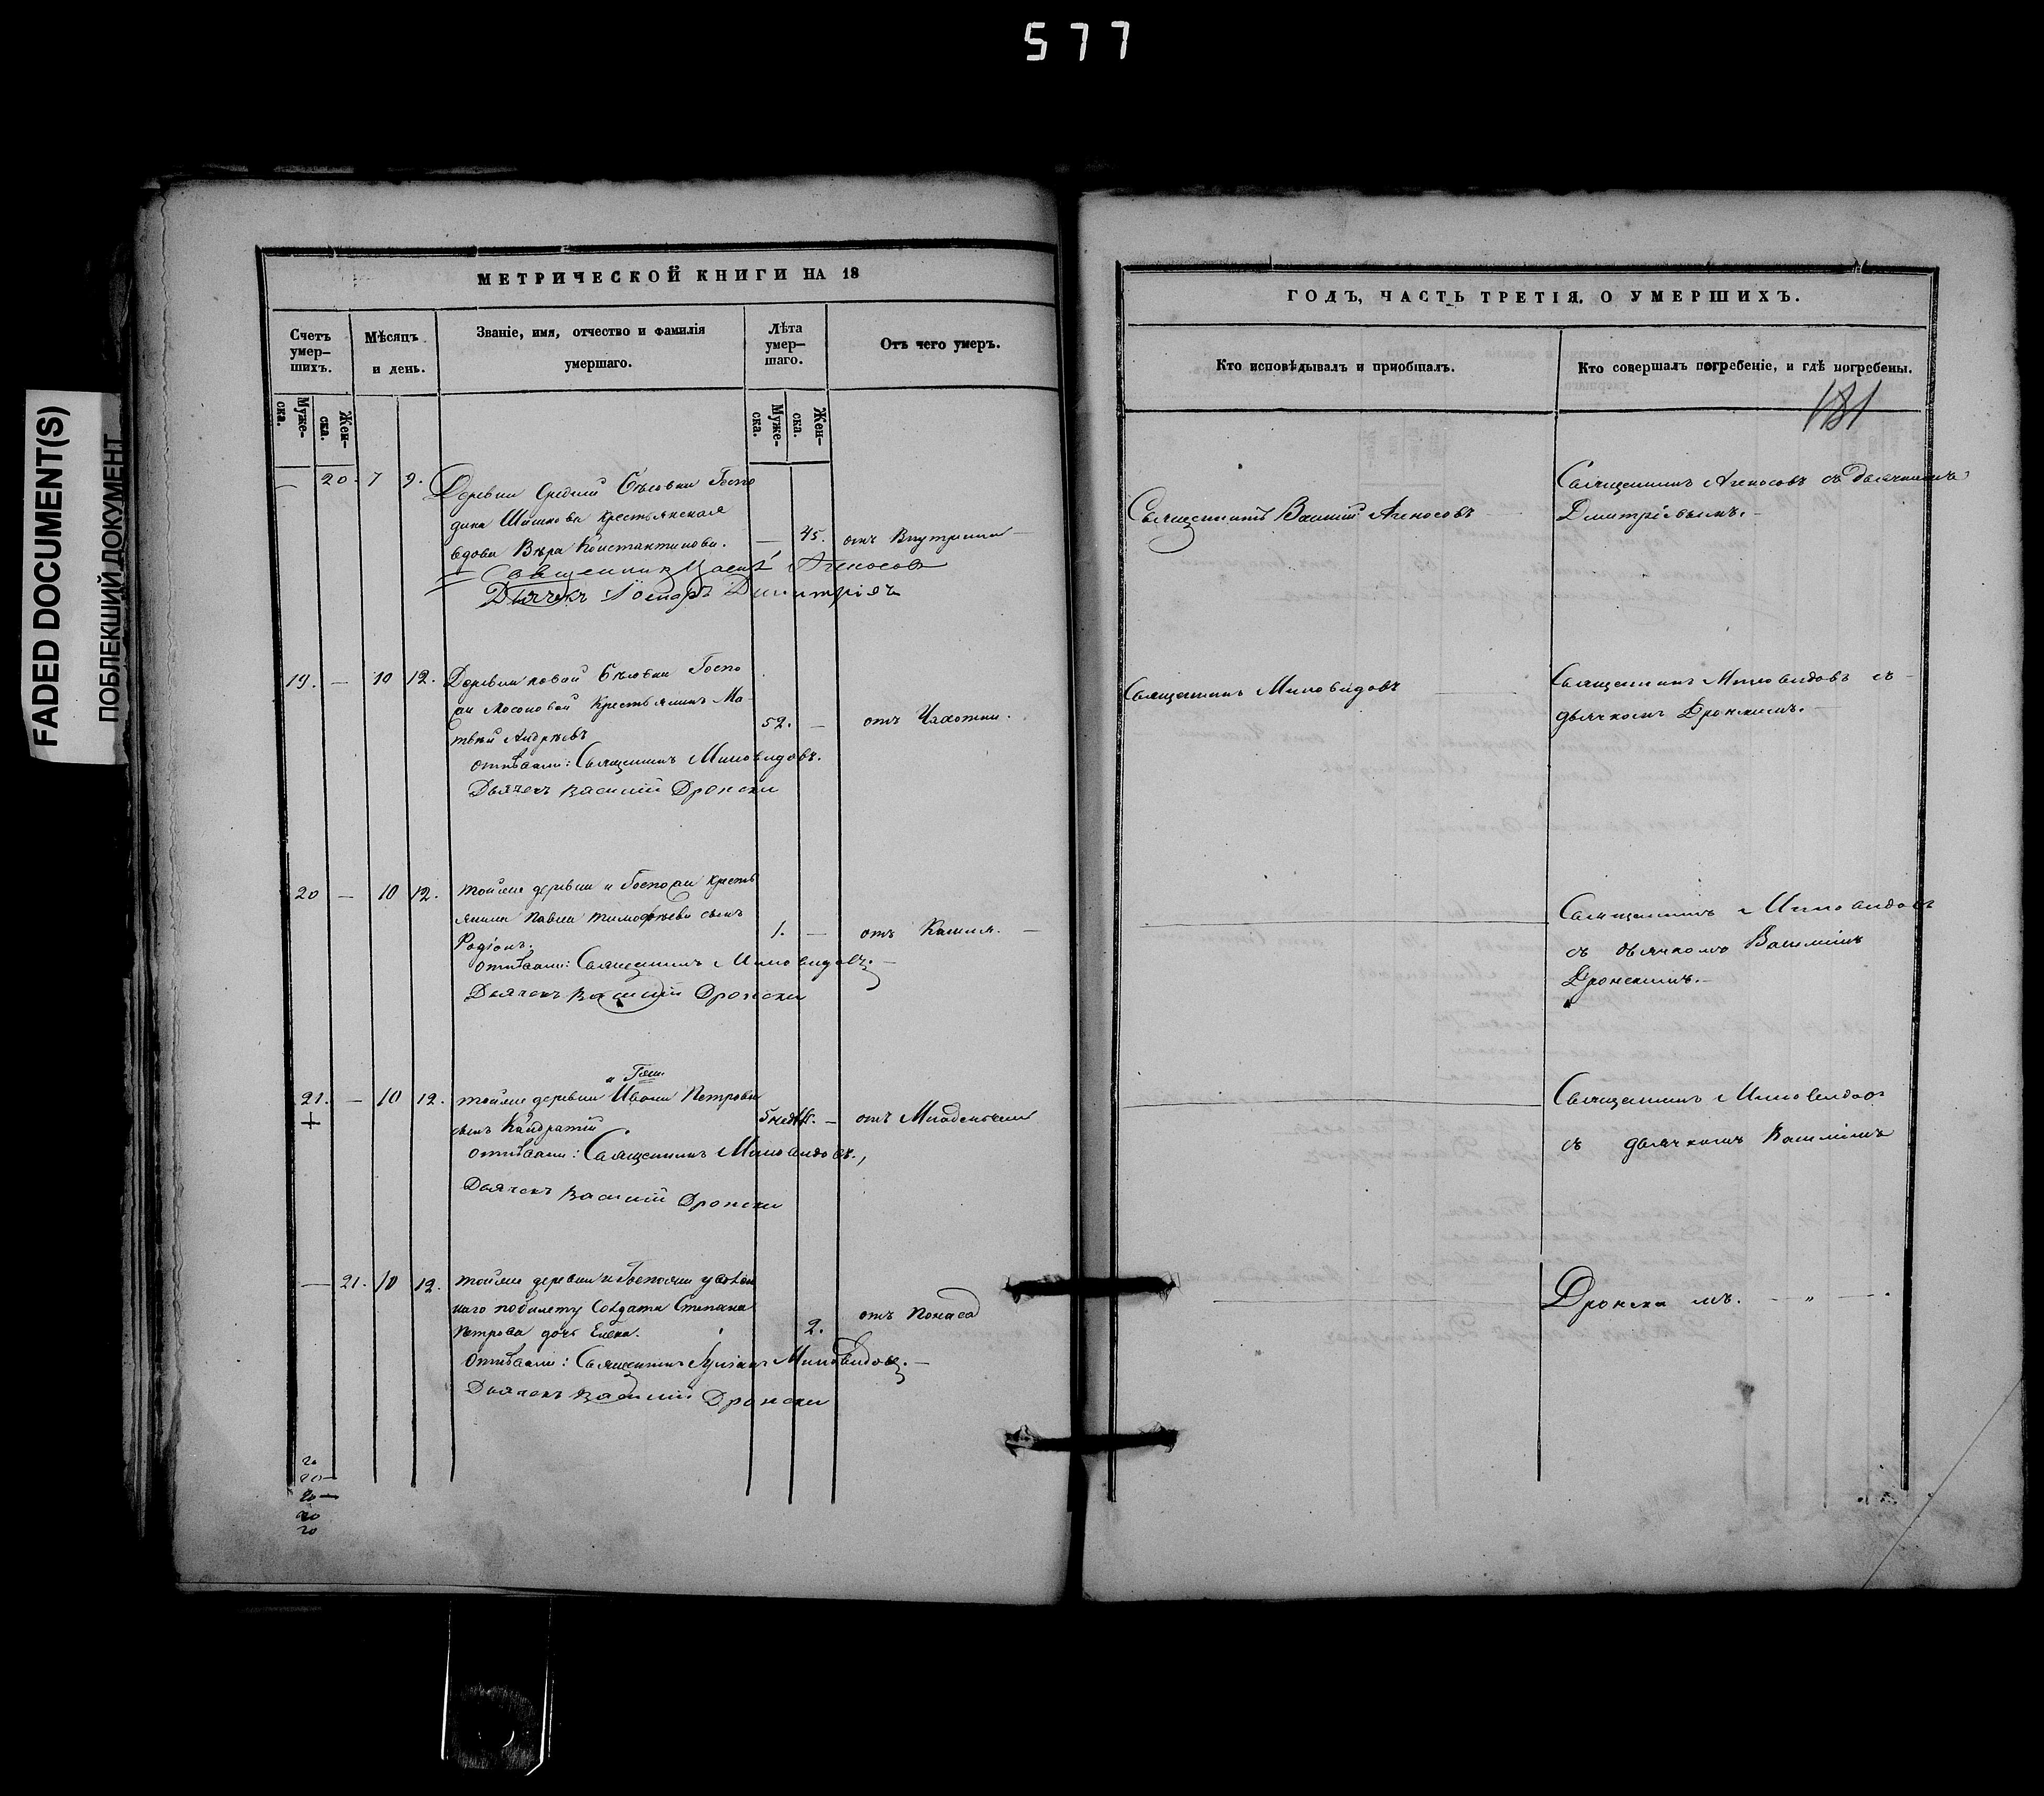 577
FADED DOCUMENT(S)
ПОБЛЕКШИЙ ДОКУМЕНТ
МЕТРИЧЕСКОЙ КНИГИ НА 18
Счетъ умер–шихъ.
Мѣсяцъ и день.
Званіе, имя, отчество и фамилія умершаго.
Лѣта умер–шаго.
Отъ чего умеръ.
Муже-ска.
Жен-ска.
Муже-ска.
Жен-ска.
— 20. 7 9. Деревни Средней Госпо
дина Шишкова крестьянская
вдова Вѣра Константинова. — 45. отъ
Священник Агносов
Дьячек Димитріев
19. — 10 12. Деревни новой Госпо
жи крестьянинъ Ма-
твѣй Андрѣевъ 52. — отъ Чахотки.
отпѣвали: Священникъ Миловидовъ.
Дьячекъ Василій Дронски
20 — 10 12. тойже деревни и Госпожи кресть
янина Павла Тимофѣева сынъ
Родіонъ. 1. — отъ Кашля. —
отпѣвали: Священникъ Миловидовъ. —
Дьячекъ Василій Дронски
и Гжи.
21. — 10 12. тойже деревни Ивана Петрова
+ сынъ Кандратій 5 недѣл. — отъ
отпѣвали: Священникъ Миловидовъ.,
Дьячекъ Василій Дронски
— 21. 10 12. тойже деревни и Госпожи уволен
наго побилету Солдата Степана
Петрова дочь Елена. 2. отъ
отпѣвали: Священникъ Миловидовъ. —
Дьячекъ Василій Дронски
20
20—
20—
20
20
ГОДЪ, ЧАСТЬ ТРЕТІЯ, О УМЕРШИХЪ.
Кто исповѣдывалъ и пріобщалъ.
Кто совершалъ погребеніе, и гдѣ погребены.
181
Священникъ Василій Агносовъ
Священникъ Агносовъ съ дьячкомъ
Димитріевымъ. –
Священникъ Миловидовъ
Священникъ Миловидовъ съ –
дьячкомъ Дронскимъ. –
Священникъ Миловидовъ
съ дьячкомъ Василіемъ
Дронскимъ. –
Священникъ Миловидовъ
съ дьячкомъ Василіемъ
Дронскимъ. – „ –